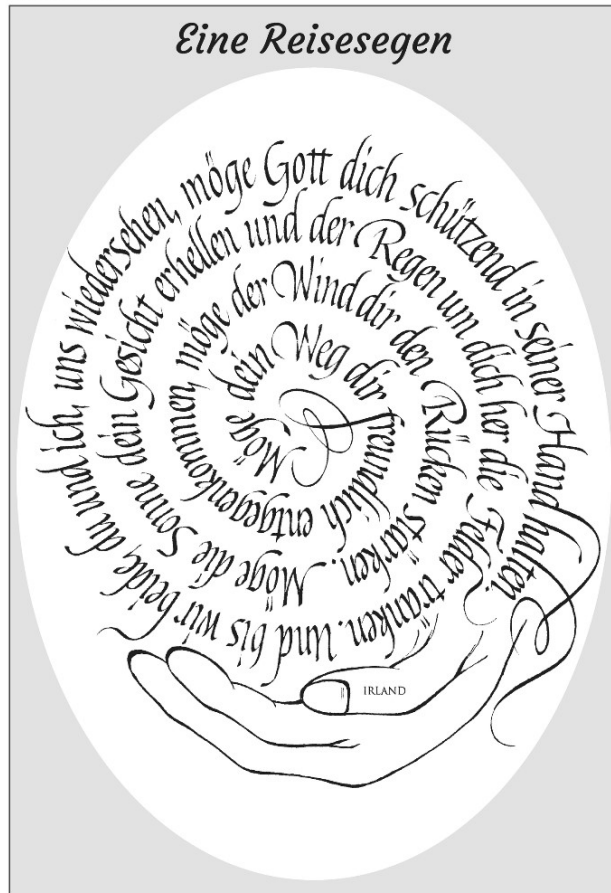 Eine Reisesegen
Möge dein Weg dir freundlich entgegenkommen, möge der Wind dir den Rücken stärken. Möge die Sonne dein Gesicht erhellen und der Regen um dich her die Felder tränken. Und bis wir beide, du und ich, uns wiedersehen, möge Gott dich schützend in seiner Hand halten.
IRLAND